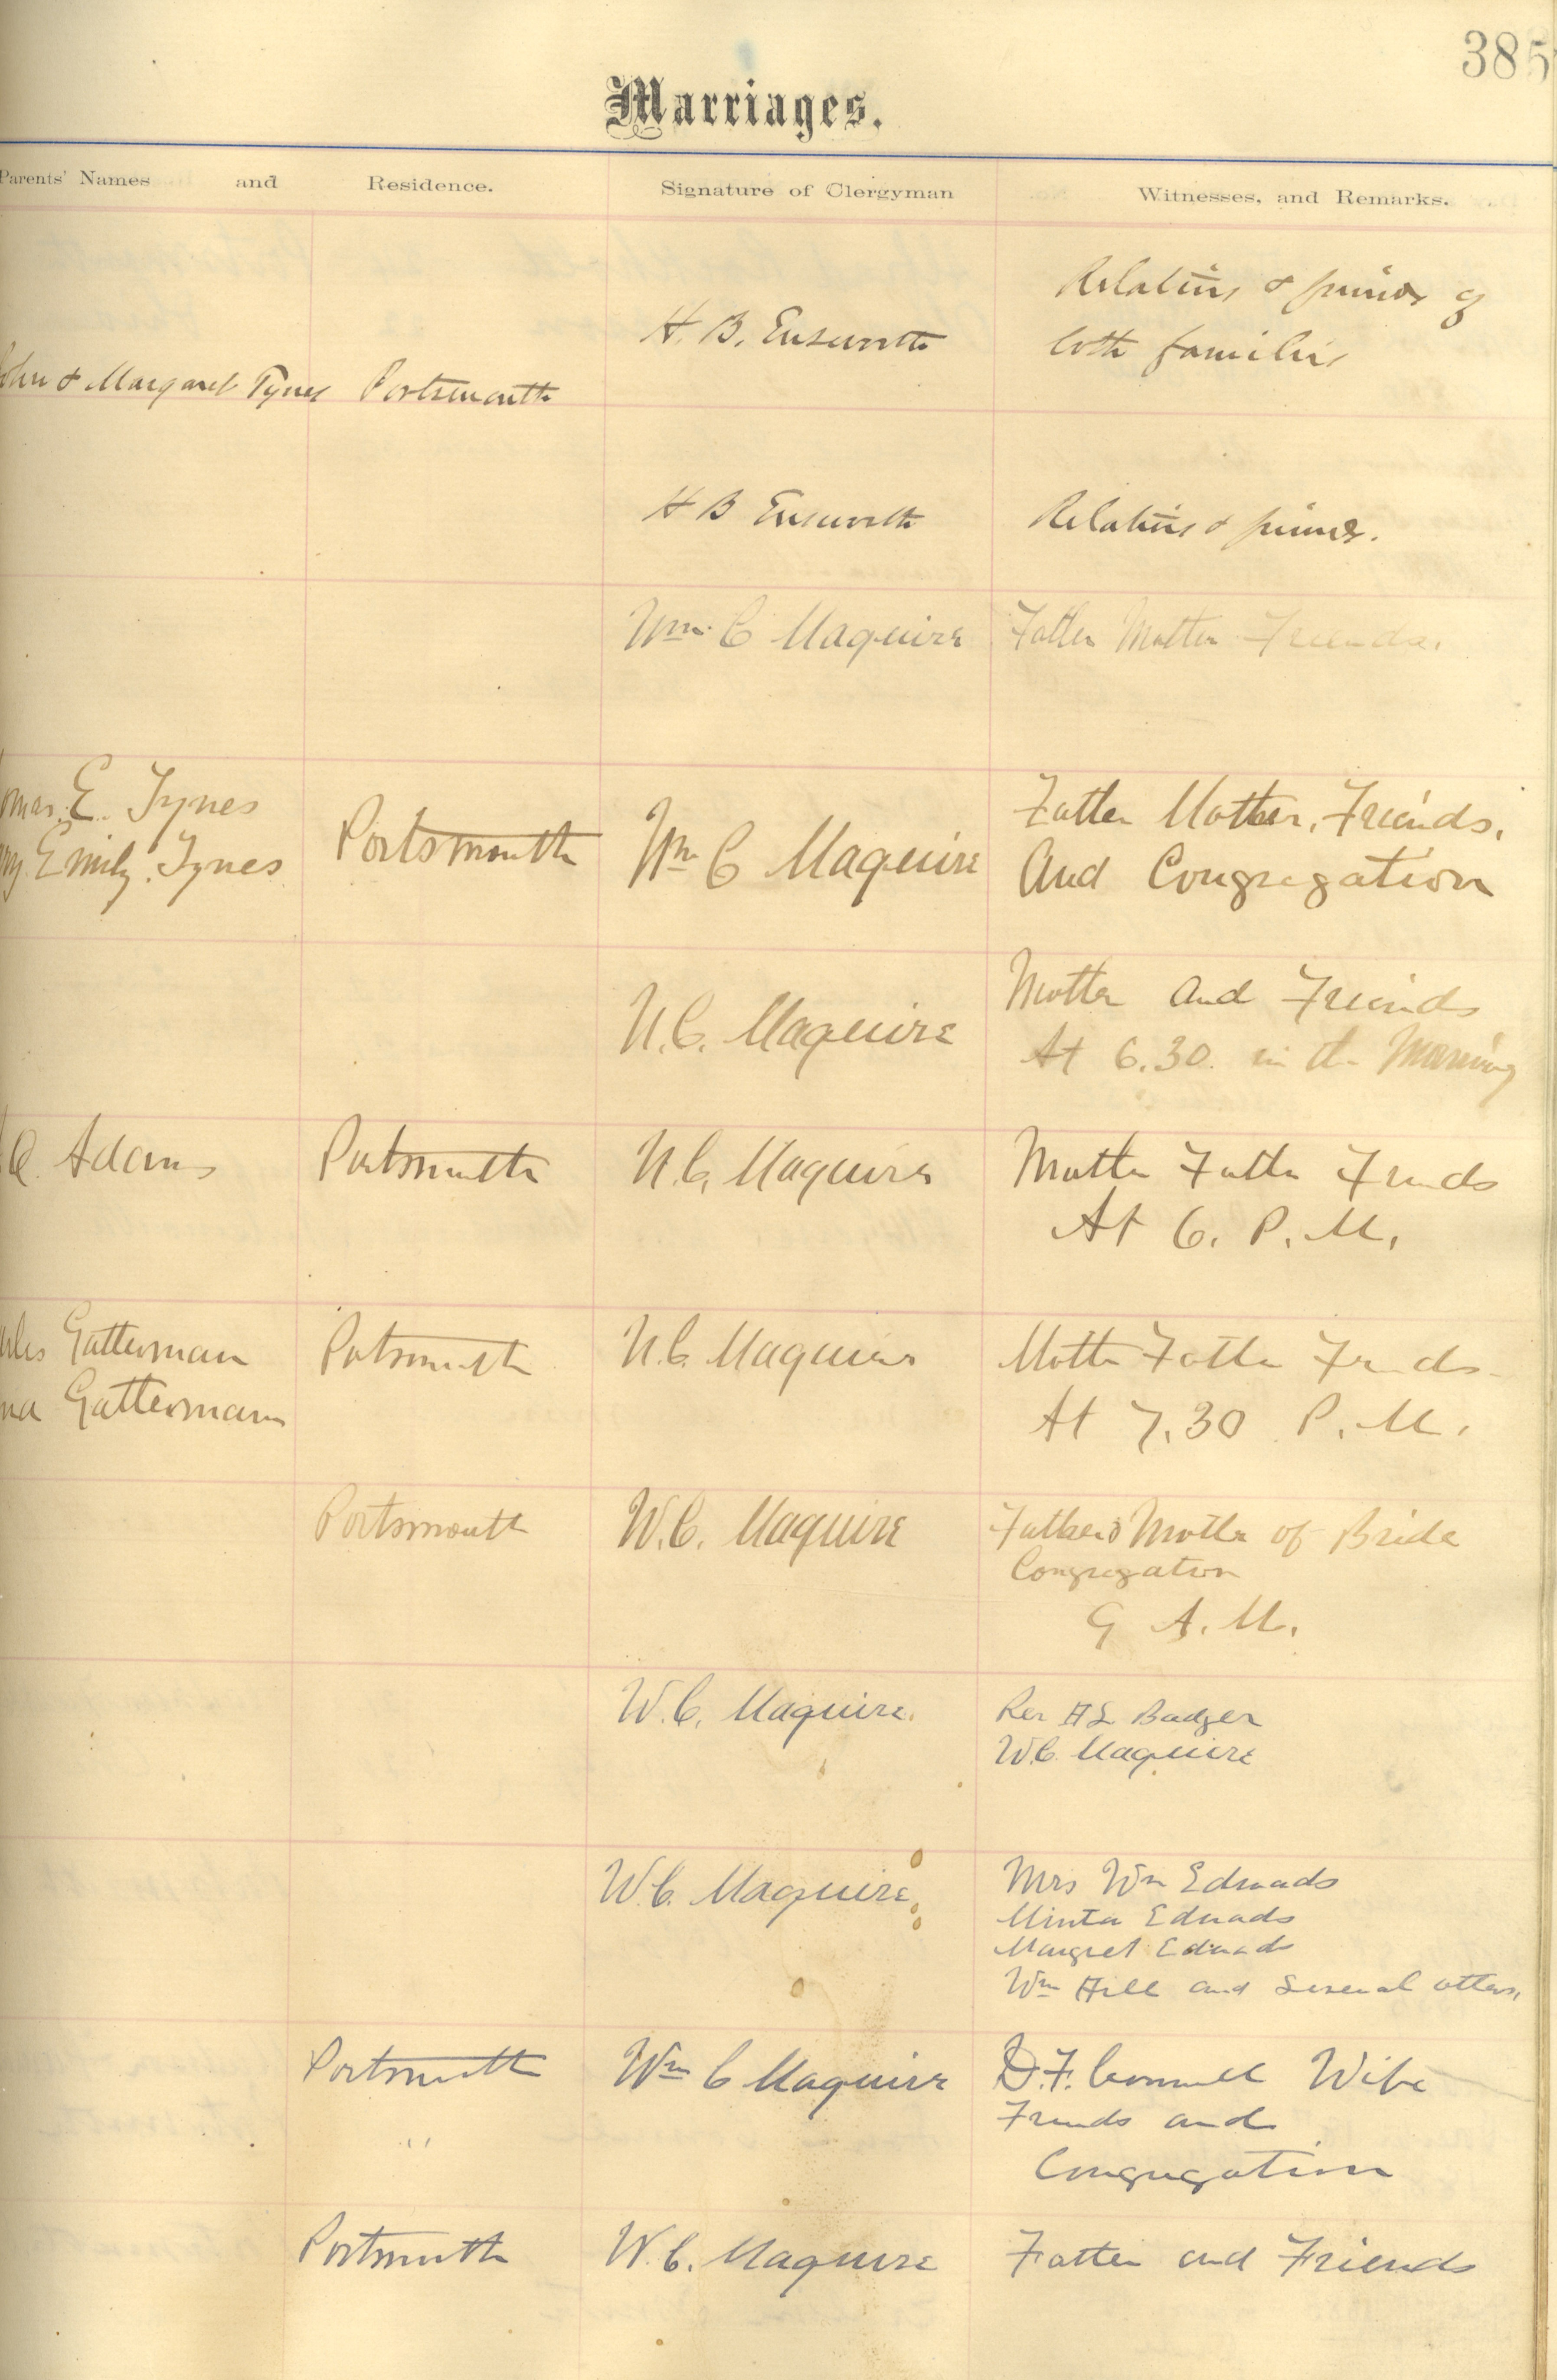 385
Marriages.
Parents' Names and Residence. Signature of Clergyman Witnesses, and Remarks.
Relatives & friends of
H. B. Ensworth both families
John & Margaret Tynes Portsmouth
H B Ensworth Relatives & friends.
Wm. C Maguire Father Mother Friends.
E. Tynes
Emily Tynes Portsmouth Wm C Maguire Father Mother, Friends,
And Congregation
W.C. Maguire Mother and Friends
At 6.30 in the Morning
C. Adams Portsmouth W.C. Maguire Mother Father Friends
At 6. P.M.
Gatterman Portsmouth W.C. Maguire Mother Father Friends
Gattermann At 7.30 P.M.
Portsmouth W.C. Maguire Father & Mother of Bride
Congregation
9 A.M.
W.C. Maguire. Rev H L Badger
W.C. Maguire
W.C. Maguire, Mrs Wm Edwards
Minta Edwards
Margret Edwards
Wm Hill and Several others,
Portsmouth Wm C Maguire D.F. Wife
Friends and
" Congregation
Portsmouth W.C. Maguire Father and Friends